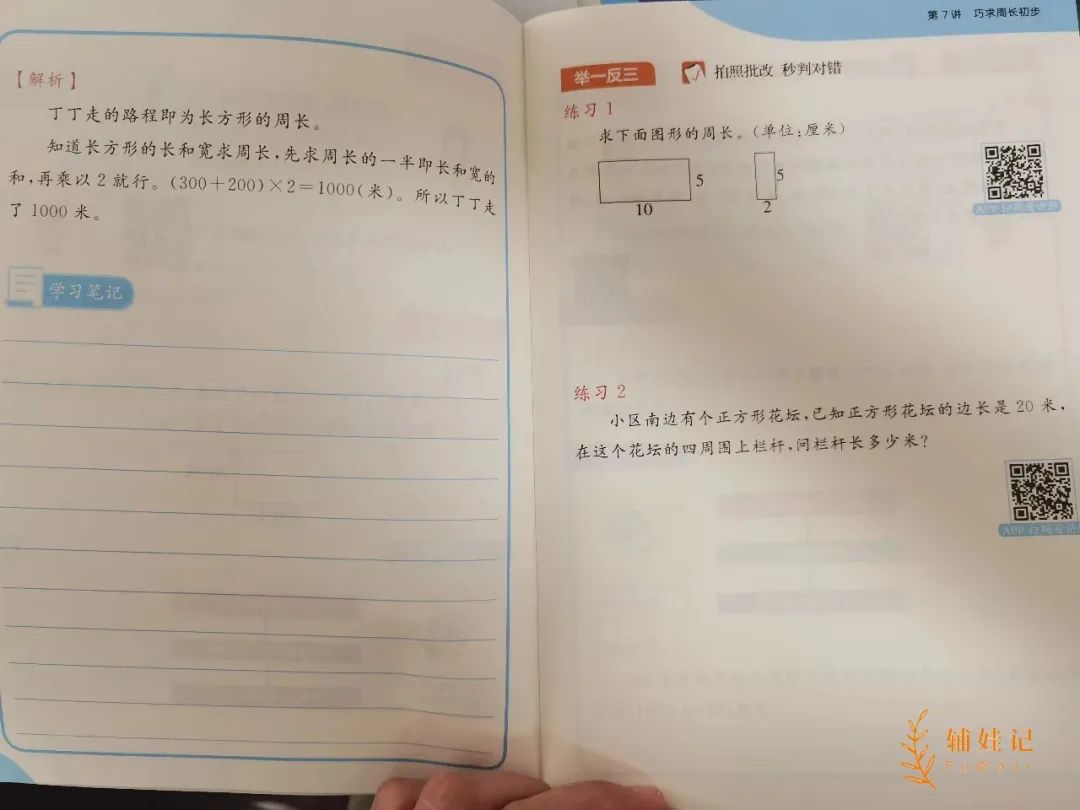 【解析】
丁丁走的路程即为长方形的周长。
知道长方形的长和宽求周长,先求周长的一半即长和宽的
和,再乘以2就行。(300+200)×2=1000(米)。所以丁丁走
了1000米。
学习笔记
第7讲 巧求周长初步
举一反三 拍照批改 秒判对错
练习1
求下面图形的周长。(单位:厘米)
5
10
5
2
APP扫码看讲解
练习2
小区南边有个正方形花坛,已知正方形花坛的边长是20米,
在这个花坛的四周围上栏杆,问栏杆长多少米?
APP扫码看讲
辅娃记